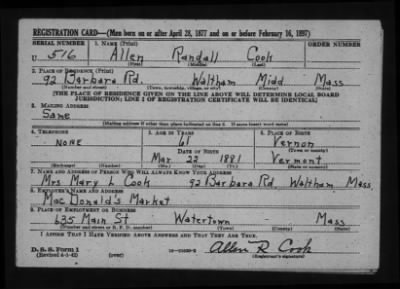 REGISTRATION CARD—(Men born on or after April 28, 1877 and on or before February 16, 1897)
SERIAL NUMBER 1. NAME (Print) ORDER NUMBER
U 516 Allen Randall Cook
(First) (Middle) (Last)
2. PLACE OF RESIDENCE (Print)
92 Barbara Rd. Waltham Midd Mass
(Number and street) (Town, township, village, or city) (County) (State)
[THE PLACE OF RESIDENCE GIVEN ON THE LINE ABOVE WILL DETERMINE LOCAL BOARD
JURISDICTION; LINE 2 OF REGISTRATION CERTIFICATE WILL BE IDENTICAL]
3. MAILING ADDRESS
Same
[Mailing address if other than place indicated on line 2. If same insert word same]
4. TELEPHONE 5. AGE IN YEARS 6. PLACE OF BIRTH
NONE 61 Vernon
DATE OF BIRTH (Town or county)
Mar. 22 1881 Vermont
(Exchange) (Number) (Mo.) (Day) (Yr.) (State or country)
7. NAME AND ADDRESS OF PERSON WHO WILL ALWAYS KNOW YOUR ADDRESS
Mrs. Mary L Cook 92 Barbara Rd. Waltham Mass.
8. EMPLOYER'S NAME AND ADDRESS
Mac Donald's Market
9. PLACE OF EMPLOYMENT OR BUSINESS
635 Main St Watertown Mass
(Number and street or R. F. D. number) (Town) (County) (State)
I AFFIRM THAT I HAVE VERIFIED ABOVE ANSWERS AND THAT THEY ARE TRUE.
D. S. S. Form 1
(Revised 4-1-42) (over) Allen R Cook
(Registrant's signature)